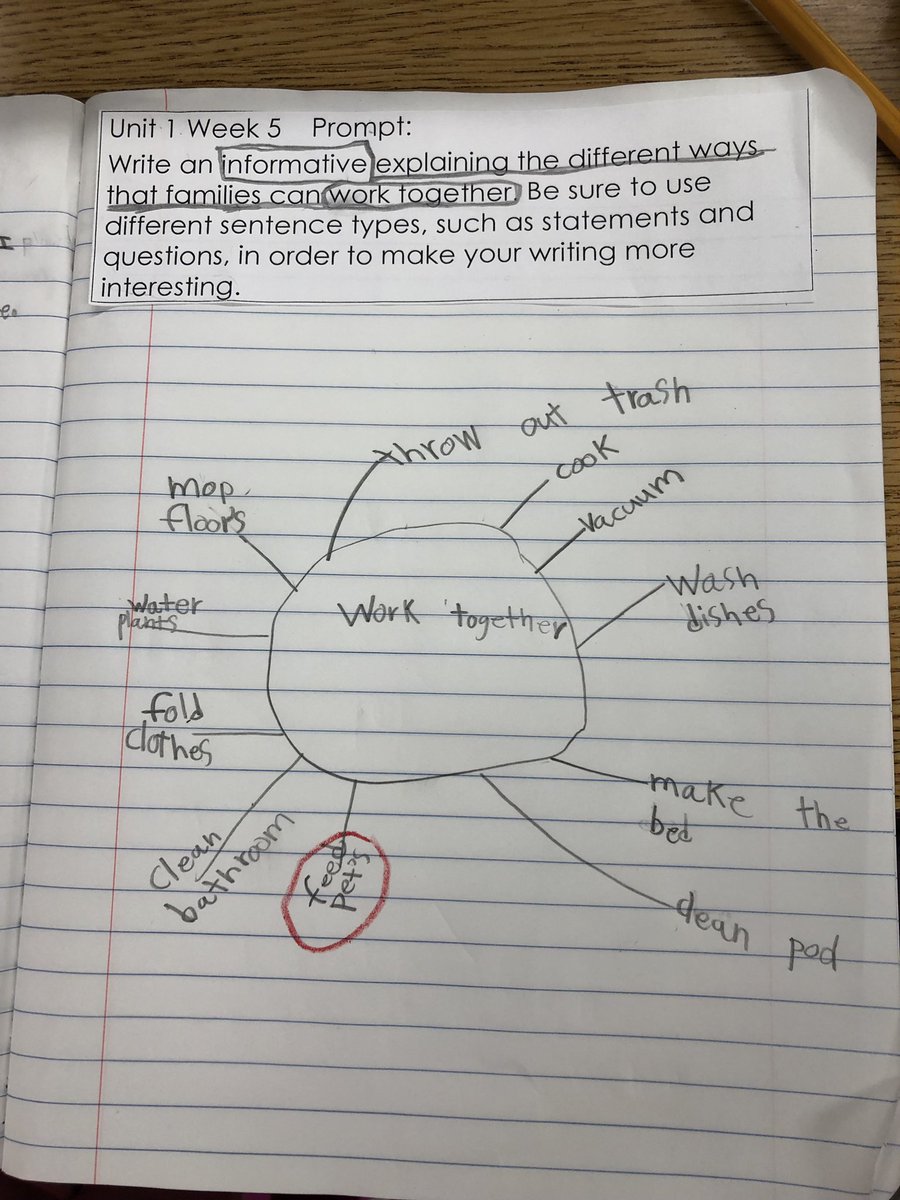 Unit 1 Week 5 Prompt:
Write an informative explaining the different ways
that families can work together. Be sure to use
different sentence types, such as statements and
questions, in order to make your writing more
interesting.
throw out trash
cook
vacuum
mop
floors
Wash
dishes
water
plants
Work together
fold
clothes
make the
bed
clean
bathroom
feed
pets
clean pod